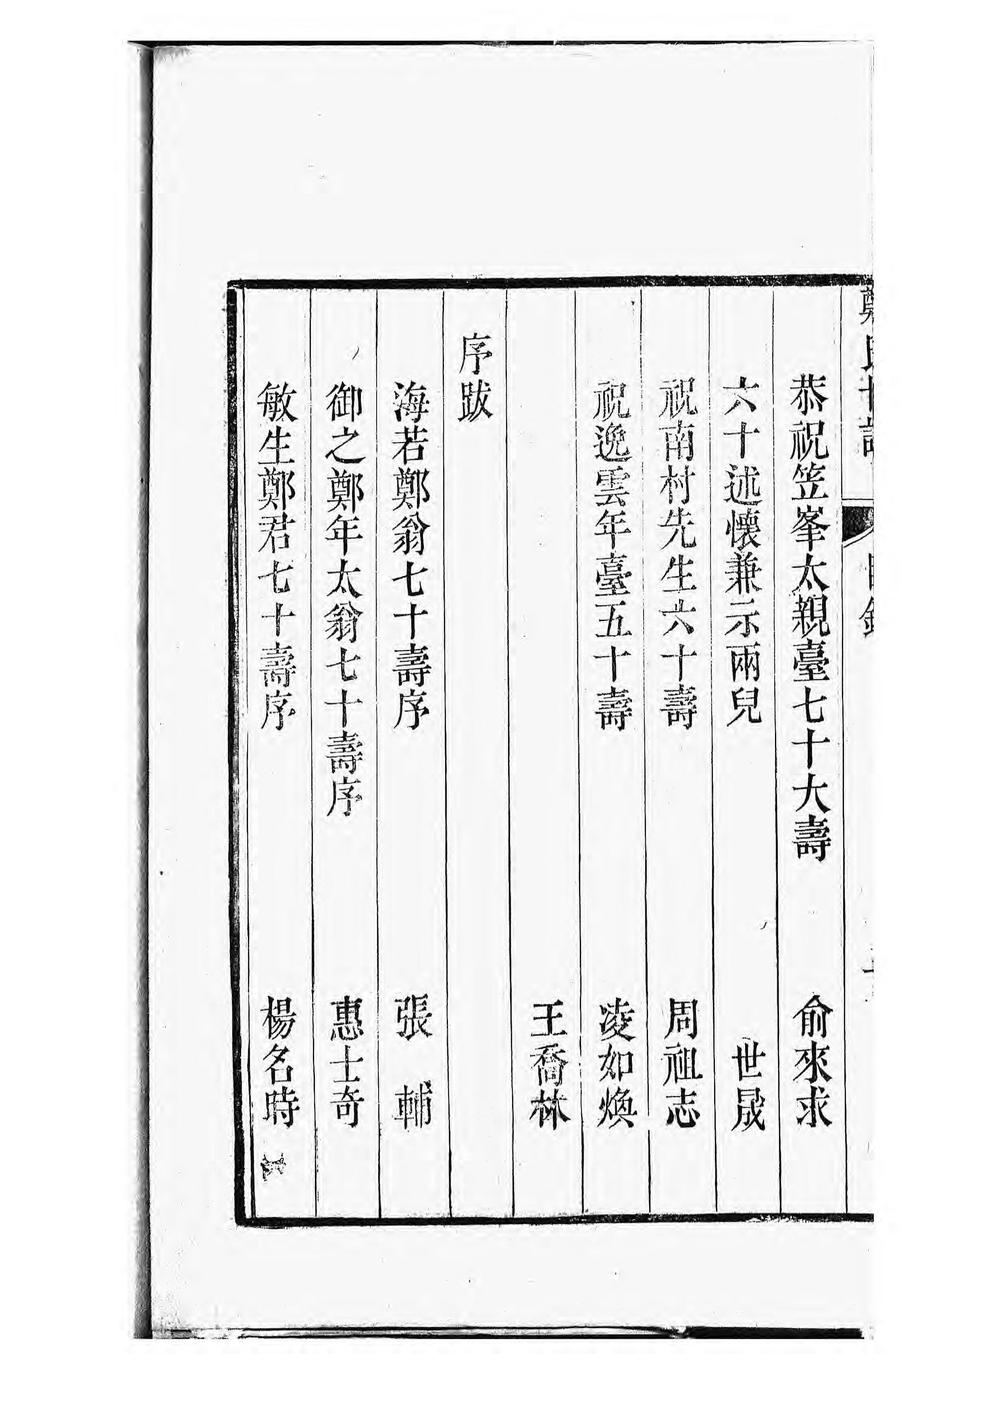 恭祝笠峯太親臺七十大壽 俞來求
六十述懷兼示兩兒 世晟
祝南村先生六十壽 周祖志
祝逸雲年臺五十壽 凌如煥
王喬林
序跋
海若鄭翁七十壽序 張輔
御之鄭年太翁七十壽序 惠士奇
敏生鄭君七十壽序 楊名時